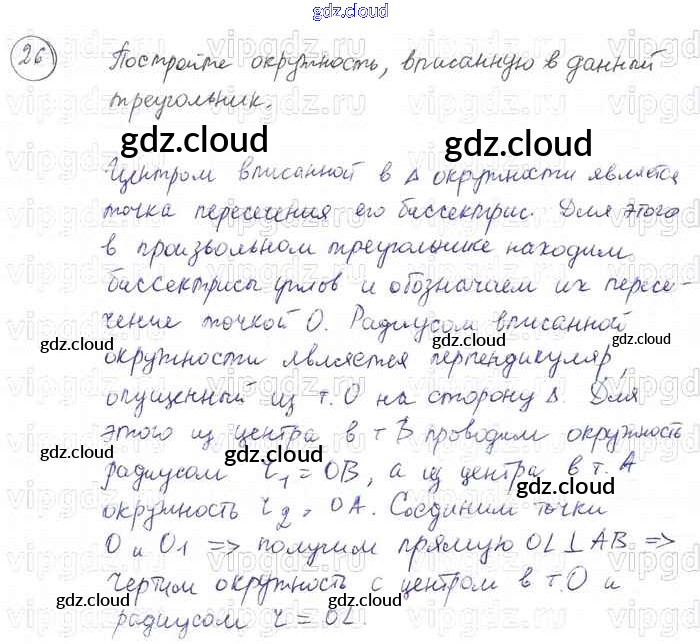 gdz.cloud
26 Постройте окружность, вписанную в данный
треугольник.
gdz.cloud gdz.cloud
Центром вписанной в Δ окружности является
точка пересечения его биссектрис. Для этого
в произвольном треугольнике находим
биссектрисы углов и обозначаем их пересе-
чение точкой О. Радиусом вписанной
gdz.cloud gdz.cloud gdz.cloud
окружности является перпендикуляр,
опущенный из т.О на сторону Δ. Для
этого из центра в т В проводим окружность
gdz.cloud gdz.cloud
радиусом r₁ = OB, а из центра в т. А
gdz.cloud
окружность r₂ = OA. Соединим точки
О и О1 => получим прямую OL⊥AB =>
Чертим окружность с центром в т.О и
gdz.cloud gdz.cloud
радиусом r = OL